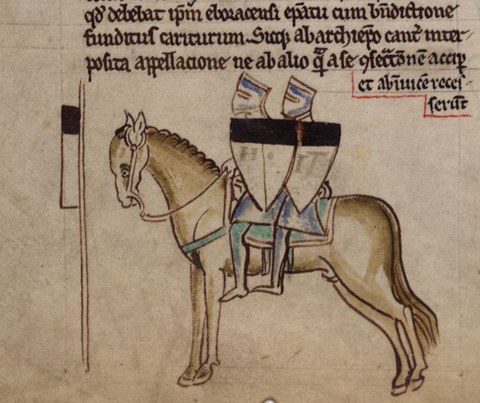 qd̄ debebat ip̄m eboracensi ep̄atu cum bn̄dictione
funditus cariturum. Sicq; ab archiep̄o cant̄ inter
posita appellacione ne ab alio qͣ̄ a se ꝯsecͣtōnem accip̄
et abīuicē reces
serūt